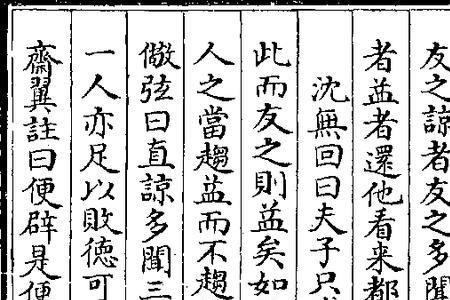 友之諒者友之多聞
者益者還他看来都
沈無回曰夫子只
此而友之則益矣如
人之當趨益而不趨
儆弦曰直諒多聞三
一人亦足以敗德可
齋翼註曰便辟是便